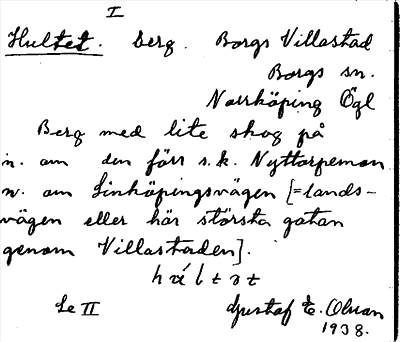 I
Hultet. berg. Borgs Villastad
Borgs sn.
Norrköping Ögl
Berg med lite skog på
n. om den förr s.k. Nyttorpemon
n. om Linköpingsvägen [=lands-
vägen eller här största gatan
genom Villastaden].
Se II Gustaf E. Olson
1938.